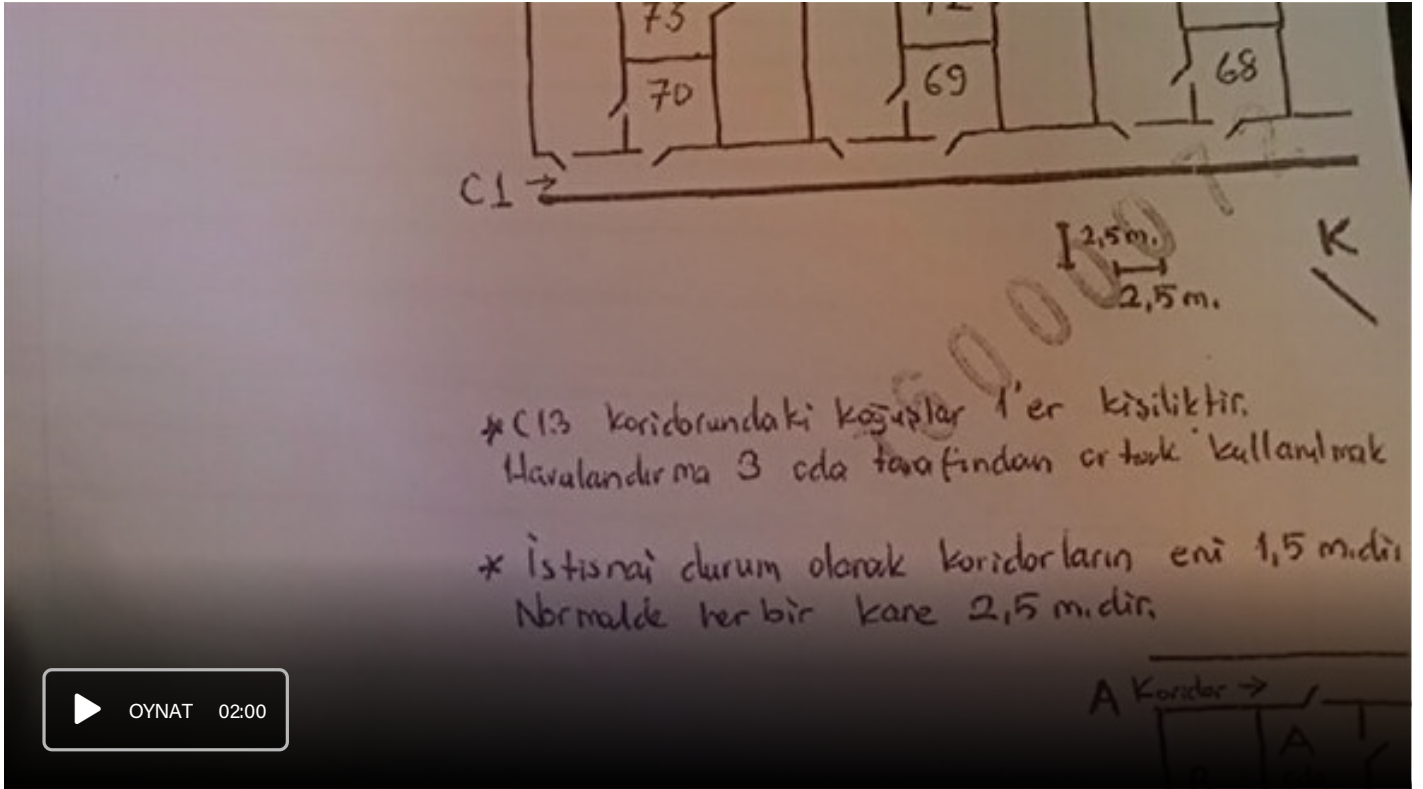 73
72
70
69
68
C1 →
2,5 m.
K
2,5 m.
* C13 koridorundaki koğuşlar 1'er kişiliktir.
Havalandırma 3 oda tarafından ortak kullanılmak
* İstisnai durum olarak koridorların eni 1,5 m.dir
Normalde her bir kare 2,5 m.dir.
A Koridor →
A
OYNAT 02:00